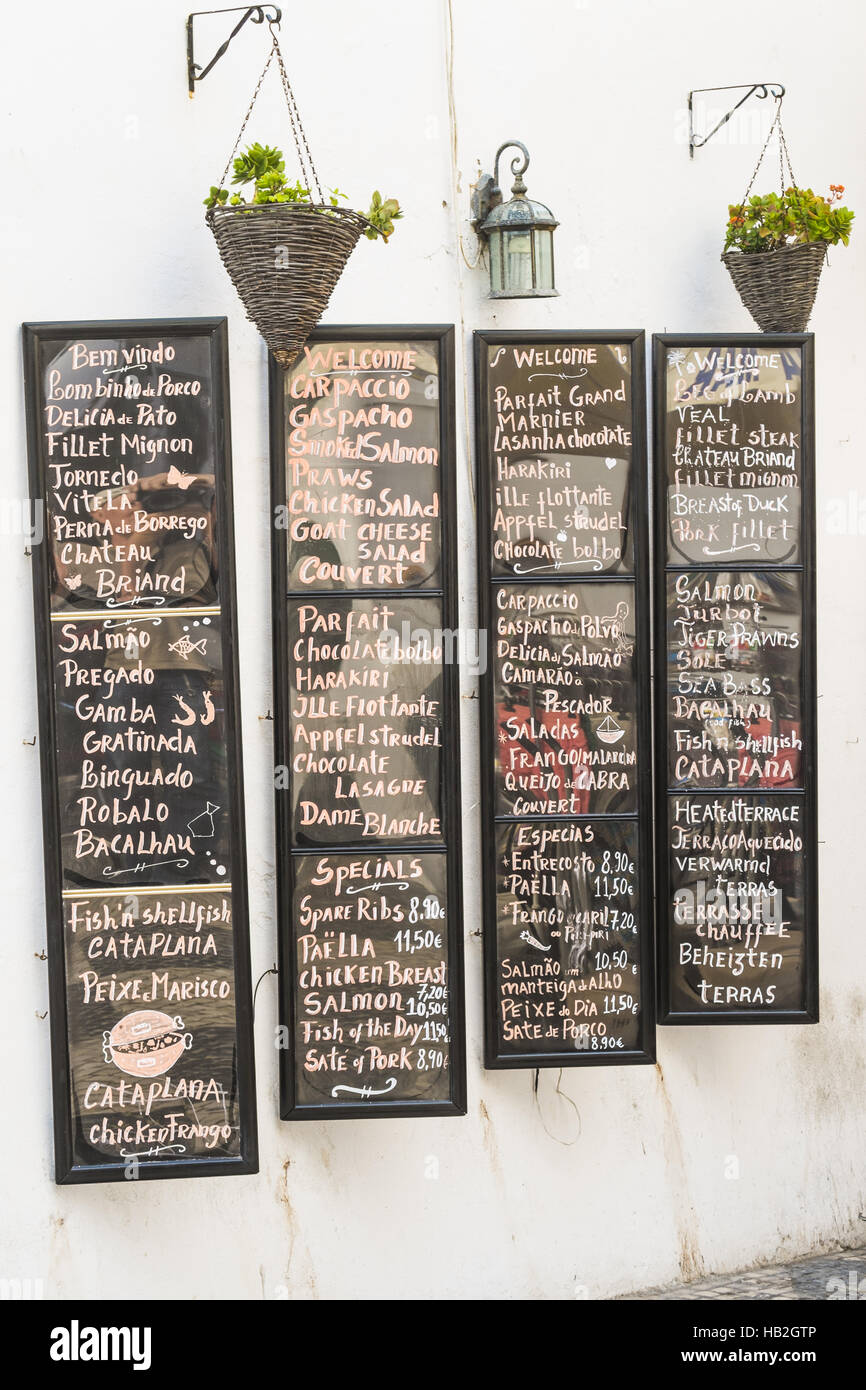 Bem vindo
Lombinho de Porco
Delicia de Pato
Fillet Mignon
Tornedo
Vitela
Perna de Borrego
Chateau
Briand
Salmão
Pregado
Gamba
Gratinada
Linguado
Robalo
Bacalhau
Fish'n shellfish
CATAPLANA
Peixe e Marisco
CATAPLANA
chicken Frango
Welcome
Carpaccio
Gaspacho
Smoked Salmon
Praws
Chicken Salad
Goat Cheese
Salad
Couvert
Parfait
Chocolate bolbo
Harakiri
Ille Flottante
Appfel strudel
Chocolate
Lasagne
Dame Blanche
Specials
Spare Ribs 8,90€
Paëlla 11,50€
Chicken Breast
7,20€
Salmon 10,50€
Fish of the Day 11,50€
Saté of Pork 8,90€
Welcome
Parfait Grand
Marnier
Lasanha chocolate
Harakiri
ille flottante
Appfel strudel
Chocolate bolbo
Carpaccio
Gaspacho de Polvo
Delicia de Salmão
Camarão à
Pescador
Saladas
Frango/Malandra
Queijo de Cabra
Couvert
Especias
Entrecosto 8,90€
Paëlla 11,50€
Frango de caril 7,20€
ou Piri-piri
Salmão em 10,50€
manteiga de Alho
Peixe do Dia 11,50€
Sate de Porco
8,90€
Welcome
Leg of Lamb
Veal
fillet steak
Chateau Briand
fillet mignon
Breast of Duck
Pork fillet
Salmon
Turbot
Tiger Prawns
Sole
Sea Bass
Bacalhau
(cod fish)
Fish'n shellfish
CATAPLANA
Heated terrace
Terraço Aquecido
verwarmd
terras
terrasse
chauffée
Beheizten
terras
alamy
Image ID: HB2GTP
www.alamy.com